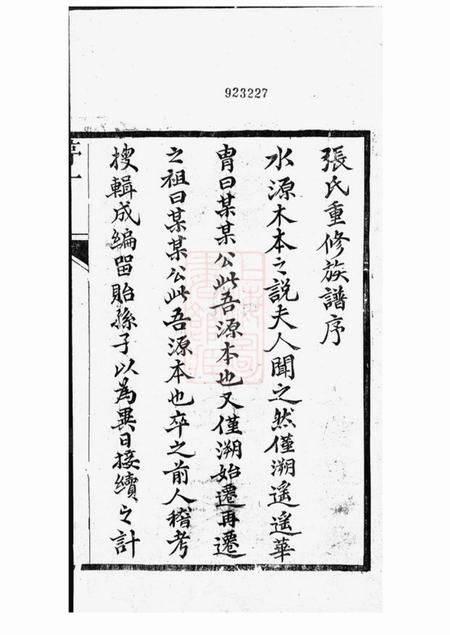 923227
張氏重修族譜序
水源木本之說夫人聞之然僅溯遙遙華
胄曰某某公此吾源本也又僅溯始遷再遷
之祖曰某某公此吾源本也卒之前人稽考
搜輯成編留貽孫子以為異日接續之計
序一